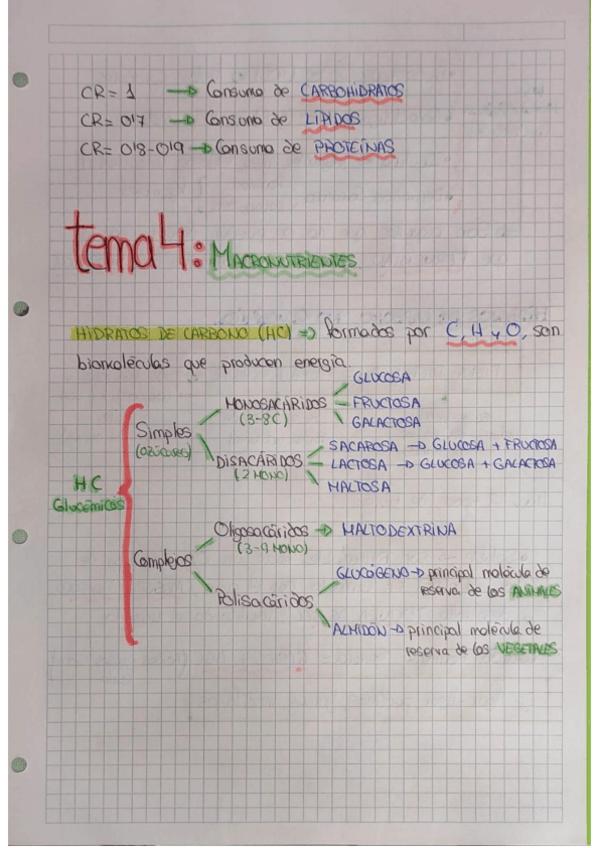 CR = 1 → Consumo de CARBOHIDRATOS
CR = 0'7 → Consumo de LÍPIDOS
CR = 0'8-0'9 → Consumo de PROTEÍNAS
tema 4: MACRONUTRIENTES
HIDRATOS DE CARBONO (HC) => formados por C, H y O, son
biomoléculas que producen energía.
HC
Glucémicos
Simples
(azúcares)
MONOSACÁRIDOS
(3-8C)
GLUCOSA
FRUCTOSA
GALACTOSA
DISACÁRIDOS
(2 MONO)
SACAROSA → GLUCOSA + FRUCTOSA
LACTOSA → GLUCOSA + GALACTOSA
MALTOSA
Complejos
Oligosacáridos → MALTODEXTRINA
(3-9 MONO)
Polisacáridos
GLUCÓGENO → principal molécula de
reserva de los ANIMALES
ALMIDÓN → principal molécula de
reserva de los VEGETALES